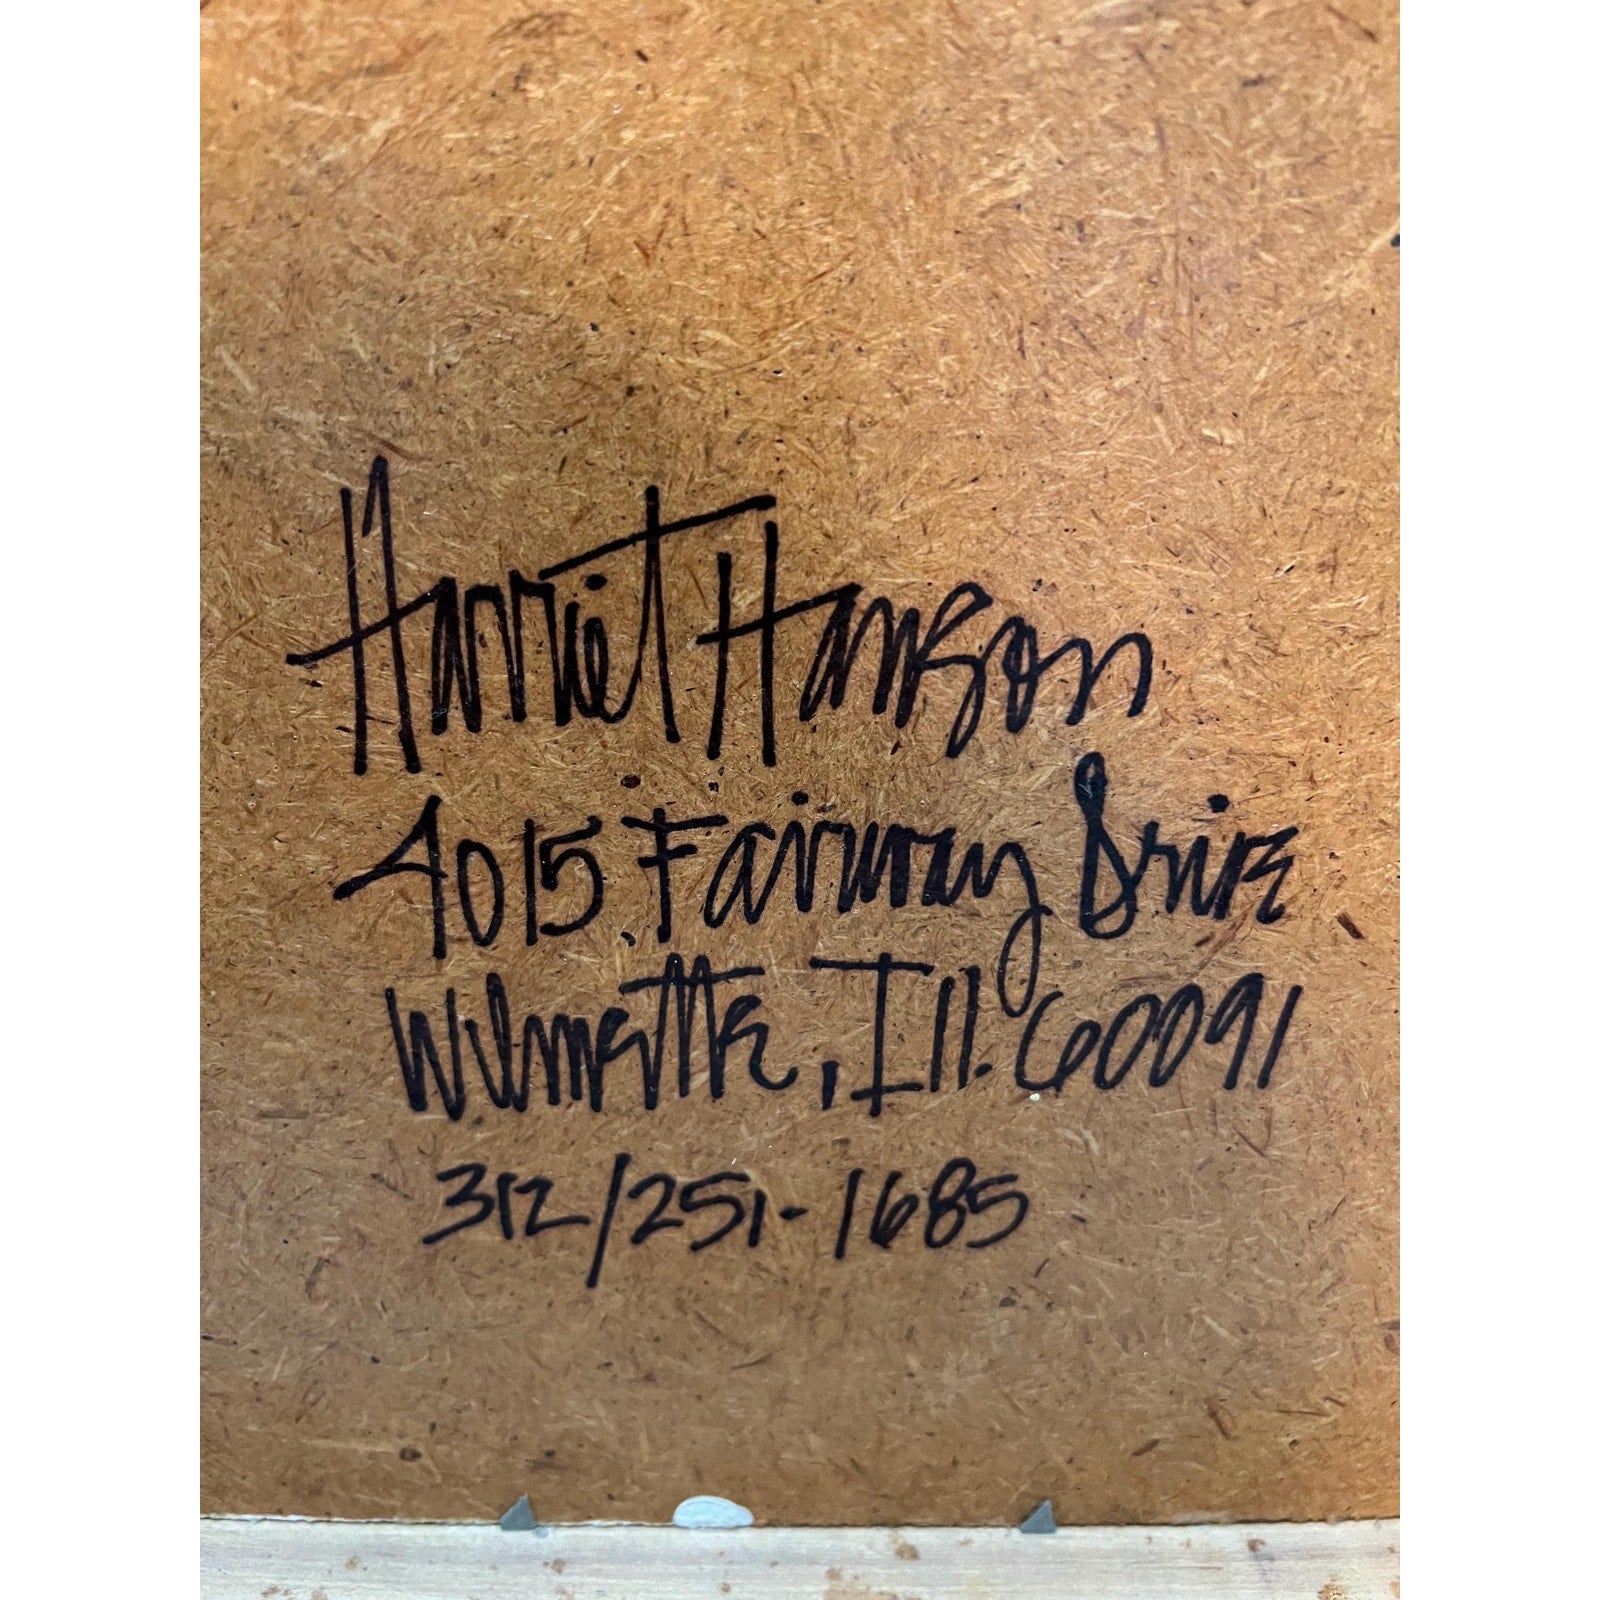 Harriet Hanson
4015 Fairway Drive
Wilmette, Ill. 60091
312/251-1685